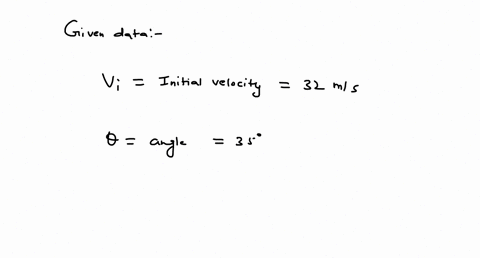 Given data:-
Vi = Initial velocity = 32 m/s
θ = angle = 35°